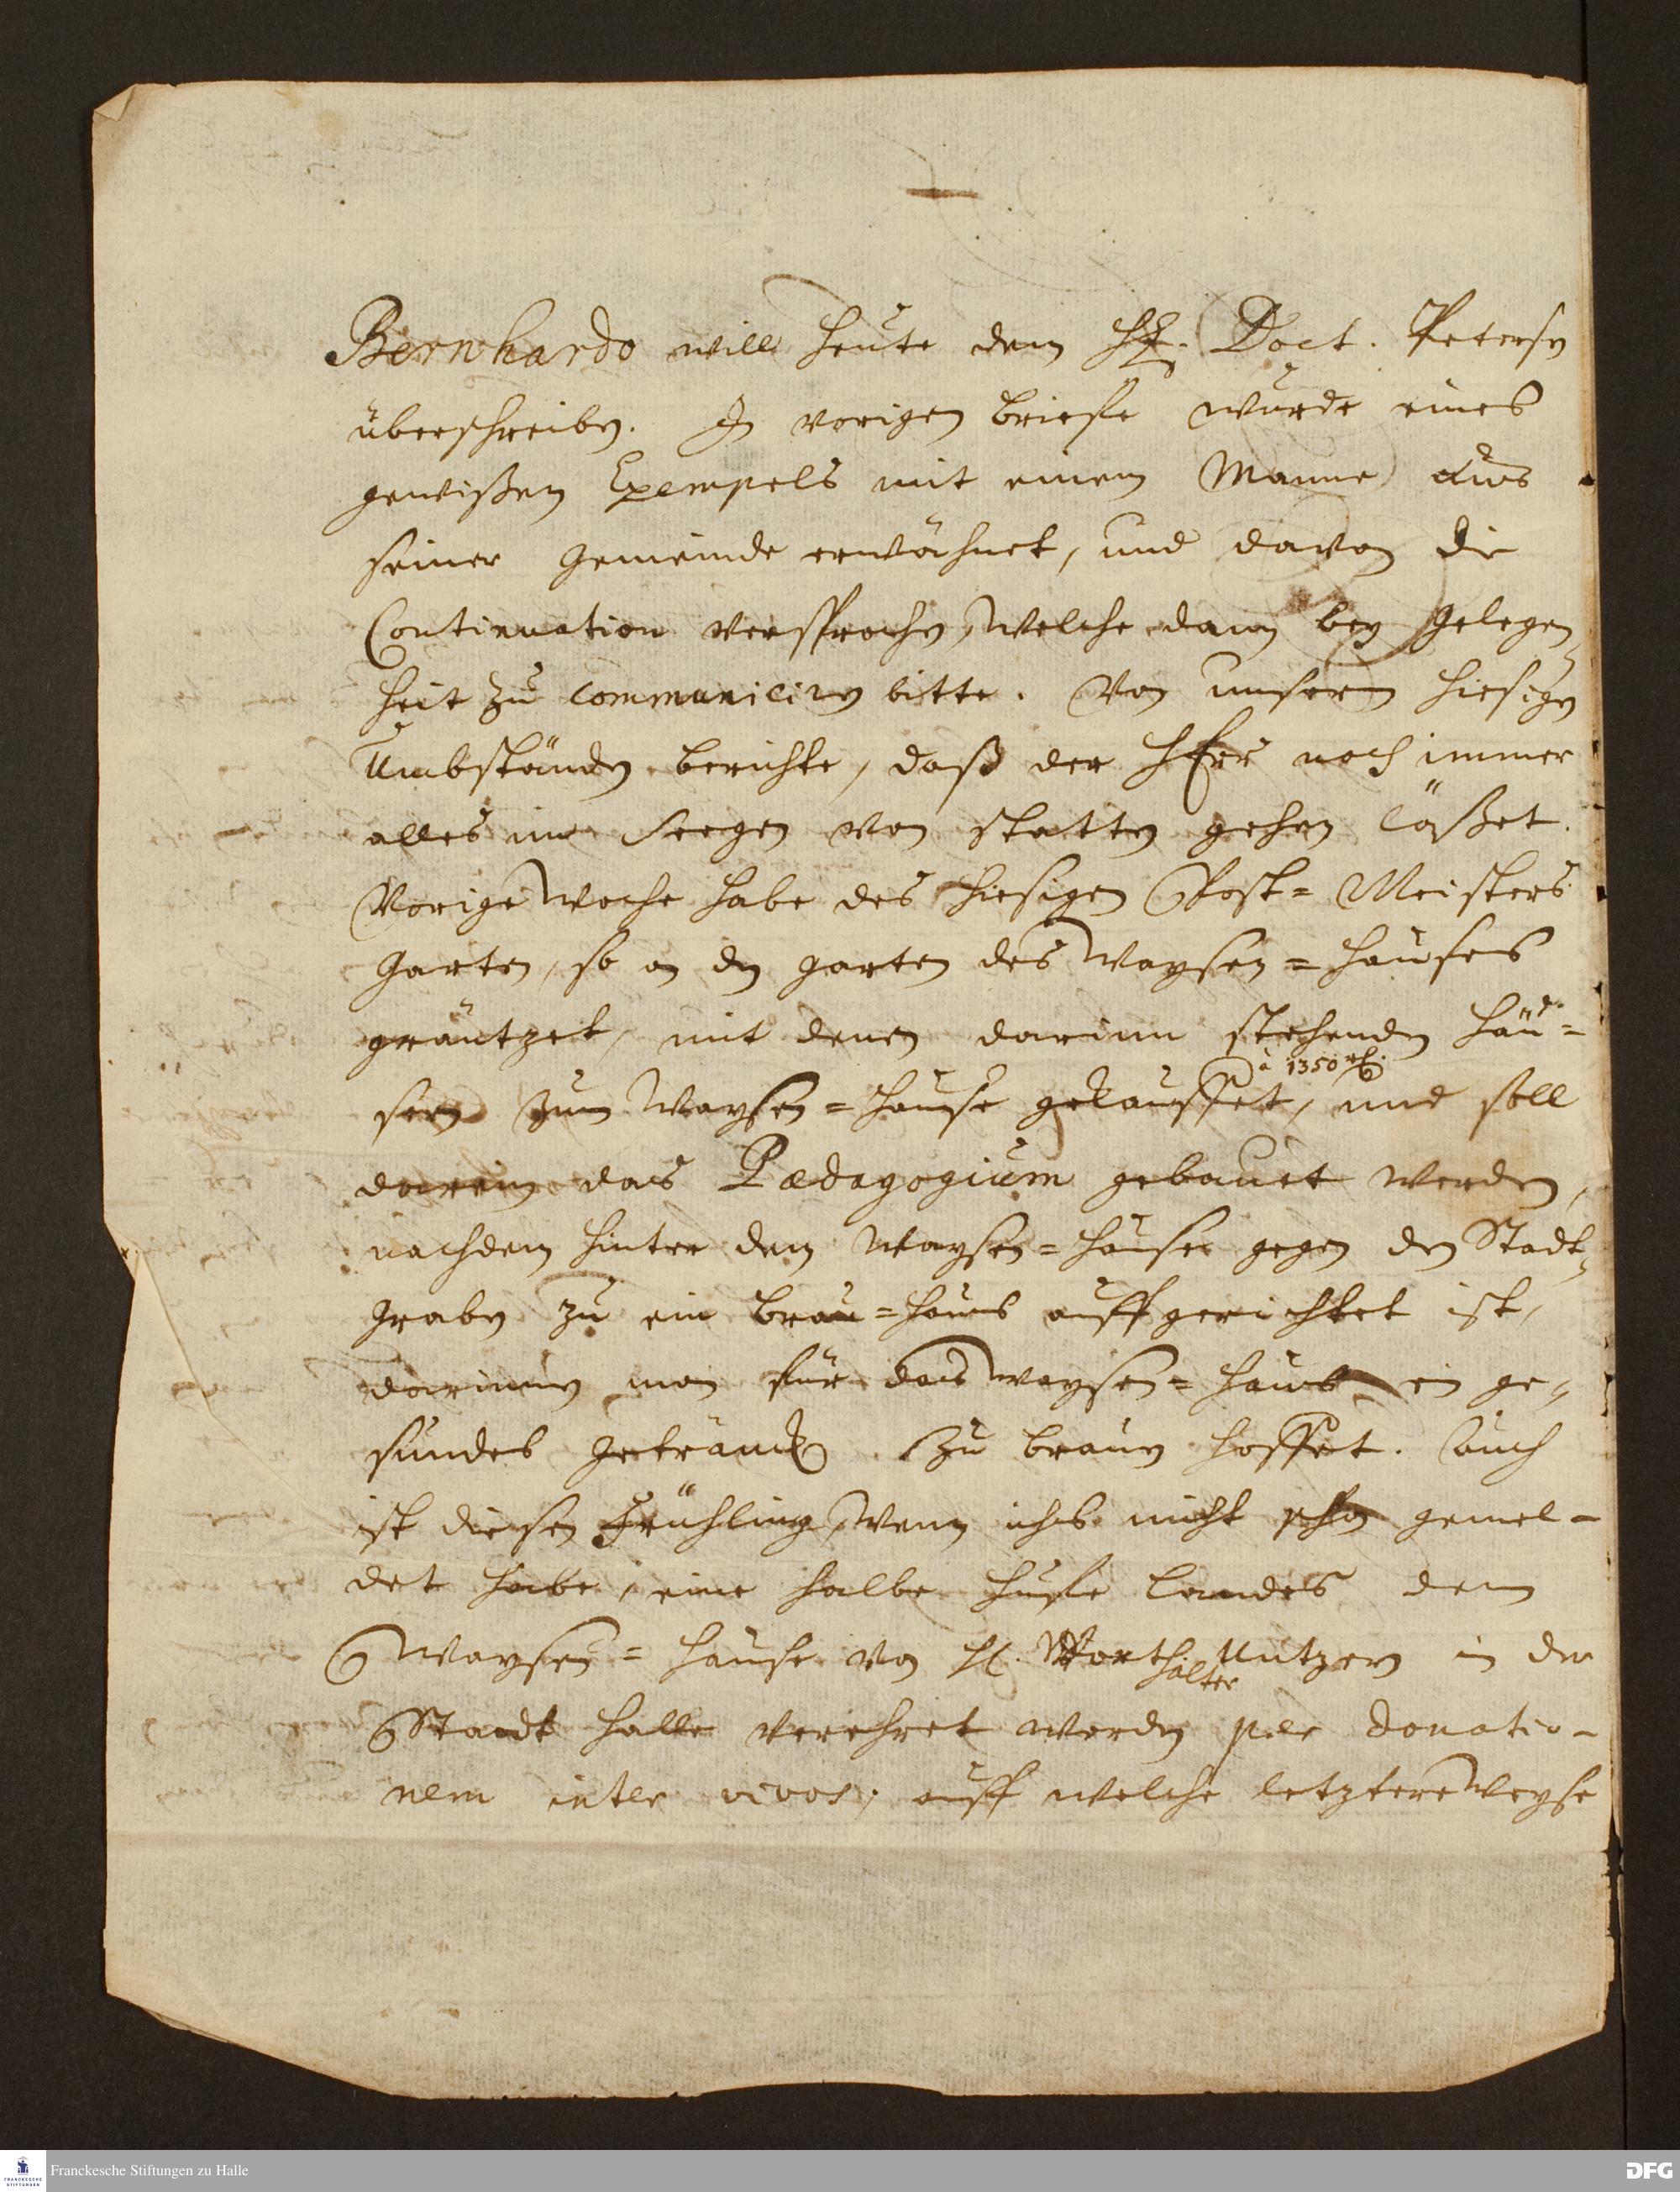 Bernhardo will heute dem H. Doct. Petersen
überschreiben. In vorigen brieffe wurde eines
gewißen Exempels mit einem Manne aus
seiner gemeinde erwähnet, und davon die
Continuation versprochen, welche dann bey gelegen
heit zu communiciren bitte. Von unsern hiesigen
Umbständen berichte, daß der HErr noch immer
alles im Seegen von statten gehen läßet.
Vorige woche habe des hiesigen Post= Meisters
garten, so an den garten des Waysen=hauses
gräntzet, mit denen darinn stehenden häu=
sern zum Waysen=hause gekauffet, und soll
à 1350 rth.
darein das Pædagogium gebauet werden,
nachdem hinter dem Waysen=hause gegen den Stadt
graben zu ein brau=haus auffgerichtet ist,
darinnen man für das waysen=haus ein ge
sundes geträncke zu brauen hoffet. Auch
ist diesen Frühling, wenn ichs nicht schon gemel=
det habe, eine halbe hufe landes dem
Waysen=hause von H. Worthhalter Nutzern in der
Stadt Halle verehret worden per donatio=
nem inter vivos; auff welche letztere weyse
Franckesche Stiftungen zu Halle
FRANCKESCHE STIFTUNGEN
DFG